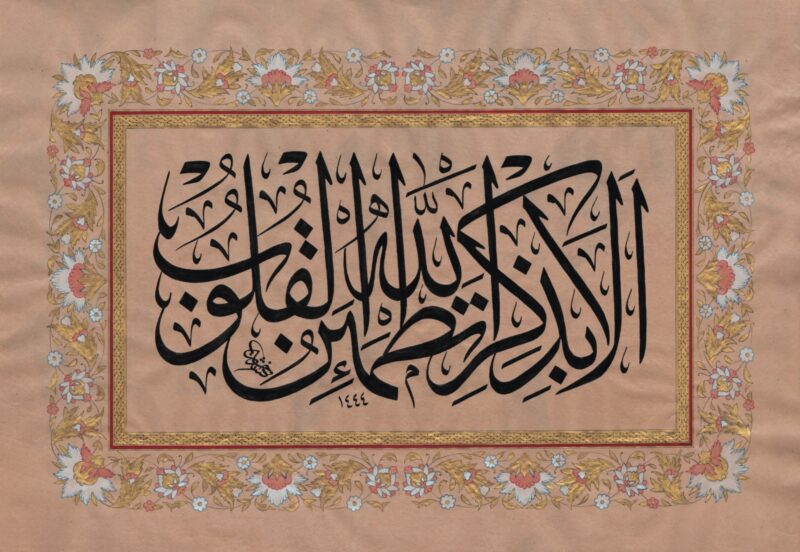 اَلَا بِذِكْرِ اللّٰهِ تَطْمَئِنُّ الْقُلُوبُ
١٤٤٤